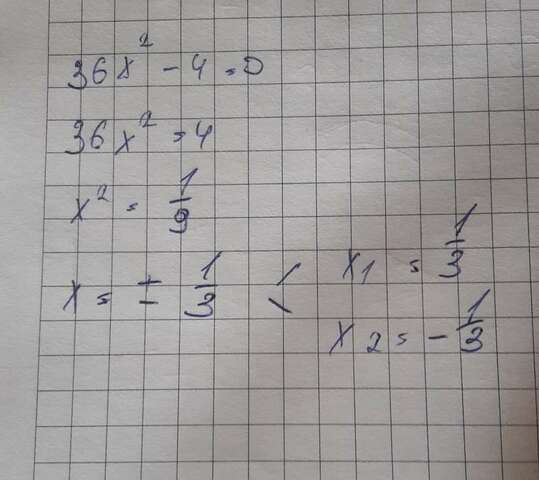 36x² - 4 = 0
36x² = 4
x² = 1/9
x = ± 1/3 < x1 = 1/3
x2 = - 1/3